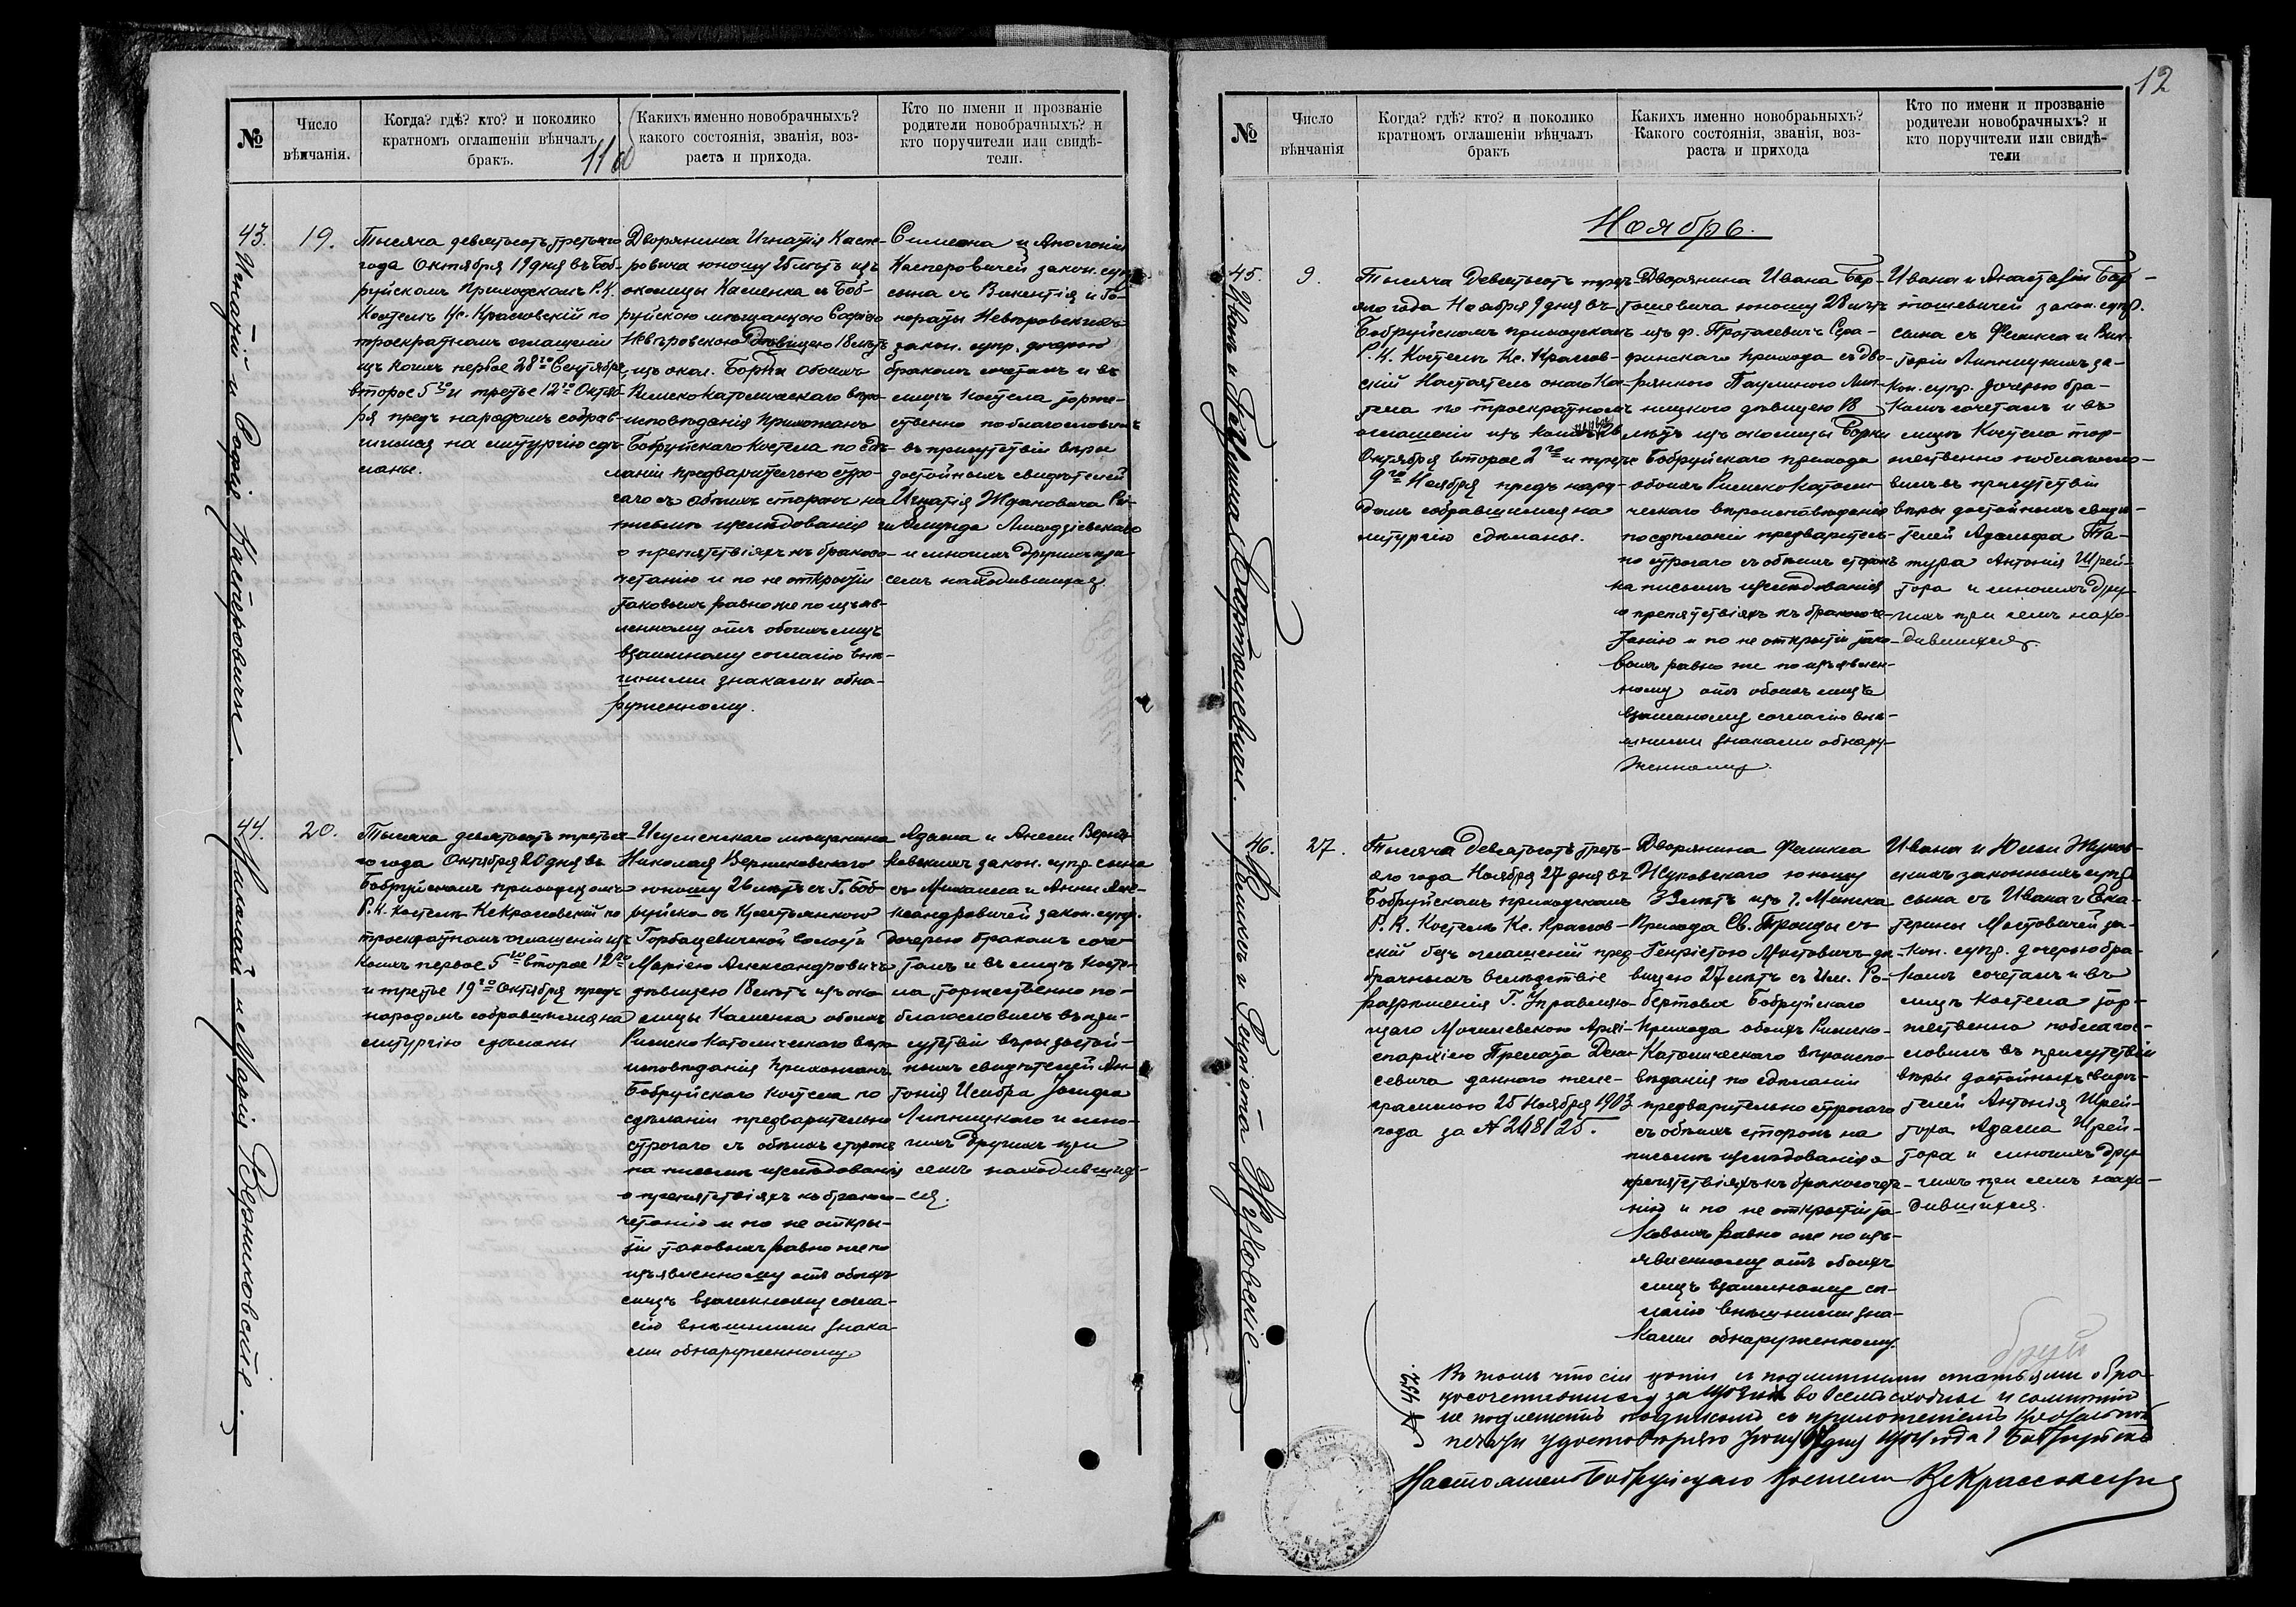 №
Число
вѣнчанія.
Когда? гдѣ? кто? и поколико
кратномъ оглашеніи вѣнчалъ
бракъ.
Какихъ именно новобрачныхъ?
какого состоянія, званія, воз-
раста и прихода.
Кто по имени и прозваніе
родители новобрачныхъ? и
кто поручители или свидѣ-
тели.
11
43.
Игнатій и Софія Касперовичи.
19.
Тысяча девятьсотъ третьяго
года Октября 19 дня въ Боб-
руйскомъ Приходскомъ Р. К.
Костелѣ Кс. Красовскій по
троекратномъ оглашеніи
изъ коихъ первое 28го Сентября,
второе 5го и третье 12го Октяб-
ря предъ народомъ собрав-
шимся на литургію сдѣ-
ланы.
Дворянина Игнатія Каспе-
ровича юношу 25 лѣтъ изъ
околицы Каменка съ Боб-
руйскою мѣщанкою Софіею
Невѣровскою дѣвицею 18 лѣтъ
изъ окол. Борки обоихъ
Римско Католическаго вѣро-
исповѣданія Прихожанъ
Бобруйскаго Костела по сдѣ-
ланіи предварительно стро-
гаго съ обѣихъ сторонъ на
письмѣ изслѣдованія
о препятствіяхъ къ бракосо-
четанію и по не открытіи
таковыхъ равно же по изъяв-
ленному отъ обоихъ лицъ
взаимному согласію внѣ-
шними знаками обна-
руженному.
Симеона и Аполоніи
Касперовичей закон. супр.
сына съ Викентія и Го-
нораты Невѣровскихъ
закон. супр. дочерью
бракомъ сочеталъ и въ
лицѣ Костела торже-
ственно поблагословилъ
въ присутствіи вѣры
достойныхъ свидѣтелей
Игнатія Ждановича
и многихъ другихъ при
семъ находившихся.
44.
Николай и Марія Верниковскіе.
20.
Тысяча девятьсотъ третья-
го года Октября 20 дня въ
Бобруйскомъ приходскомъ
Р. К. Костелѣ Кс Красовскій по
троекратномъ оглашеніи изъ
коихъ первое 5го второе 12го
и третье 19го Октября предъ
народомъ собравшимся на
литургію сдѣланы
Игуменскаго мѣщанина
Николая Верниковскаго
юношу 26 лѣтъ съ Г. Боб-
руйска съ Крестьянкою
Горбацевичской волости
Маріею Александровичъ
дѣвицею 18 лѣтъ изъ око-
лицы Каменка обоихъ
Римско Католическаго вѣро
исповѣданія Прихожанъ
Бобруйскаго Костела по
сдѣланіи предварительно
строгаго съ обѣихъ сторонъ
на письмѣ изслѣдованія
о препятствіяхъ къ бракосо-
четанію и по не откры-
тіи таковыхъ равно же по
изъявленному отъ обоихъ
лицъ взаимному согла-
сію внѣшними знака-
ми обнаруженному.
Адама и Анели Верни-
ковскихъ закон. супр. сына
съ Михаила и Анны Але-
ксандровичей закон. супр.
дочерью бракомъ соче-
талъ и въ лицѣ Косте-
ла торжественно по-
благословилъ въ при-
сутствіи вѣры достой-
ныхъ свидѣтелей Ан-
тонія Іосифа
Липницкаго и мно-
гихъ другихъ при
семъ находивших-
ся.
12
№
Число
вѣнчанія
Когда? гдѣ? кто? и поколико
кратномъ оглашеніи вѣнчалъ
бракъ
Какихъ именно новобраьныхъ?
Какого состоянія, званія, воз-
раста и прихода
Кто по имени и прозваніе
родители новобрачныхъ? и
кто поручители или свидѣ-
тели
Ноябрь.
45.
Иванъ и Бартошевичи.
9.
Тысяча Девятьсотъ треть-
яго года Ноября 9 дня въ
Бобруйскомъ приходскомъ
Р. К. Костелѣ Кс. Красов-
скій Настоятель онаго Кос-
тела по троекратномъ
оглашеніи изъ коихъ
Октября второе 2го и третье
9го Ноября предъ наро-
домъ собравшимся на
литургію сдѣланы.
Дворянина Ивана Бар-
тошевича юношу 28 лѣтъ
изъ ф. Протасевичъ Сера-
финскаго прихода съ дво-
рянкою Паулиною Лип-
ницкою дѣвицею 18
лѣтъ изъ околицы Борки
Бобруйскаго прихода
обоихъ Римско Католи-
ческаго вѣроисповѣданія
по сдѣланіи предваритель-
но строгаго съ обѣихъ сторонъ
на письмѣ изслѣдованія
о препятствіяхъ къ бракосоче-
танію и по не открытіи тако-
выхъ равно же по изъявлен-
ному отъ обоихъ лицъ
взаимному согласію внѣ-
шними знаками обнару-
женному.
Ивана и Анастасіи Бар-
тошевичей закон. супр.
сына съ Феликса и Вик-
торіи Липницкихъ за-
кон. супр. дочерью бра-
комъ сочеталъ и въ
лицѣ Костела тор-
жественно поблагосло-
вилъ въ присутствіи
вѣры достойныхъ свидѣ-
телей Адольфа Та-
тура Антонія Шрей-
тора и многихъ дру-
гихъ при семъ нахо-
дившихся.
46.
Феликсъ и Генріета Жуковскіе.
27.
Тысяча Девятьсотъ треть-
яго года Ноября 27 дня въ
Бобруйскомъ приходскомъ
Р. К. Костелѣ Кс. Красов-
скій безъ оглашеній пред-
брачныхъ вслѣдствіе
разрѣшенія Г. Управляю-
щаго Могилевскою Архі-
епархіею Прелата Дени-
севича даннаго теле-
граммою 25 Ноября 1903
года за № 2481 25.
Дворянина Феликса
Жуковскаго юношу
лѣтъ изъ г. Минска
Прихода Св. Троицы съ
Генріетою Мостовичъ дѣ-
вицею 27 лѣтъ съ Им. Ро-
бертова Бобруйскаго
Прихода обоихъ Римско-
Католическаго вѣроиспо-
вѣданія по сдѣланіи
предварительно строгаго
съ обѣихъ сторонъ на
письмѣ изслѣдованія о
препятствіяхъ къ бракосочета-
нію и по не открытіи та-
ковыхъ равно же по изъ-
явленному отъ обоихъ
лицъ взаимному со-
гласію внѣшними зна-
ками обнаруженному.
Ивана и Юліи Жуков-
скихъ законныхъ супр.
сына съ Ивана и Ека-
терины Мостовичей за-
кон. супр. дочерью бра-
комъ сочеталъ и въ
лицѣ Костела тор-
жественно поблагос-
ловилъ въ присутствіи
вѣры достойныхъ свидѣ-
телей Антонія Шрей-
тора Адама Шрей-
тора и многихъ дру-
гихъ при семъ нахо-
дившихся.
№ 452
Въ томъ что сіи копіи съ подлинными статьями о бра-
косочетавшихся за во всемъ сходны и сомнѣнію
не подлежатъ подписомъ съ приложеніемъ
печати удостовѣряю года г. Бобруйскъ
Настоятель Бобруйскаго Костела Кс Красовскій